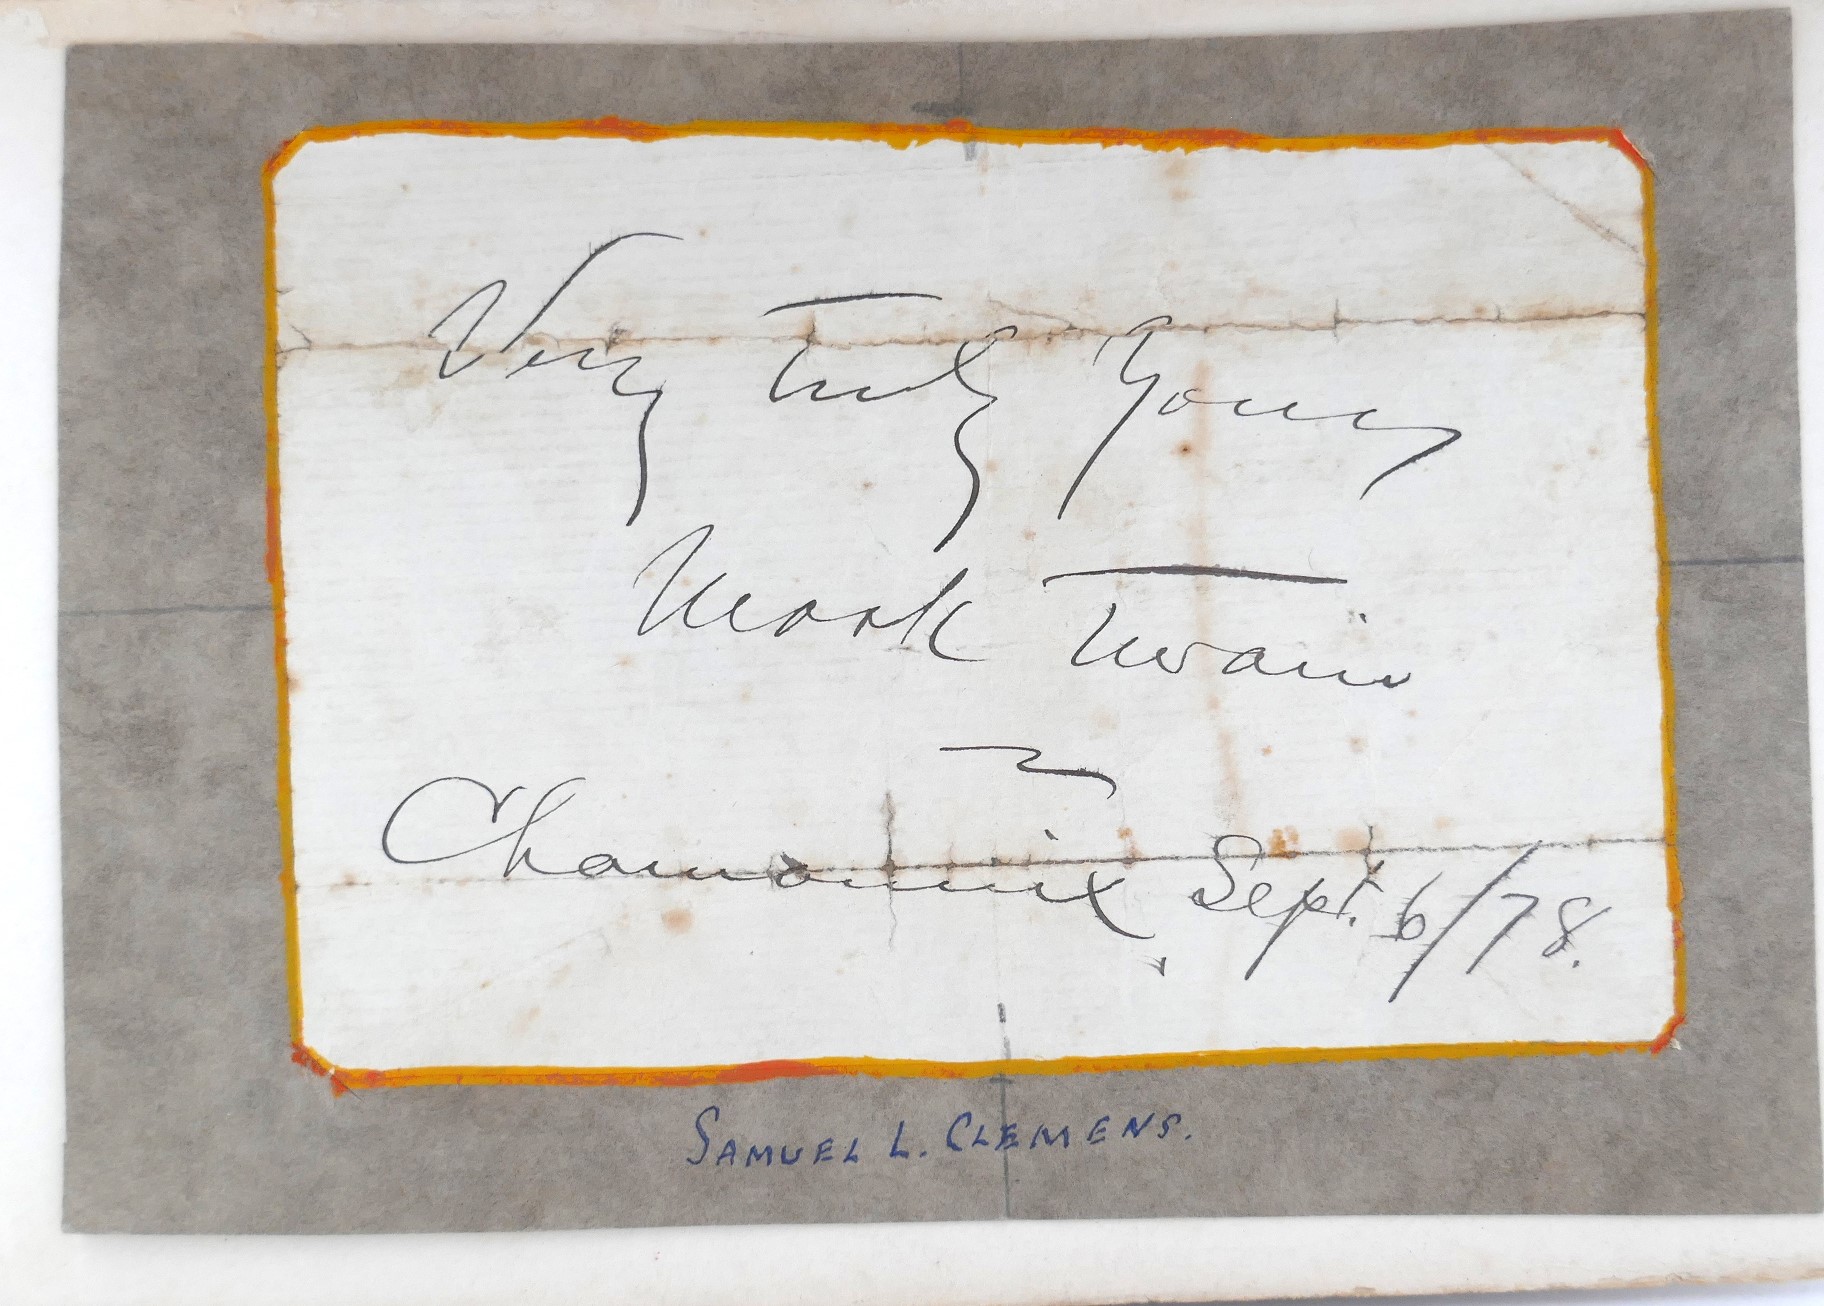 Very Truly Yours
Mark Twain
Chamounix, Sept. 6/78.
SAMUEL L. CLEMENS.